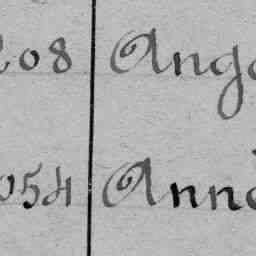 208 Ang
054 Ann